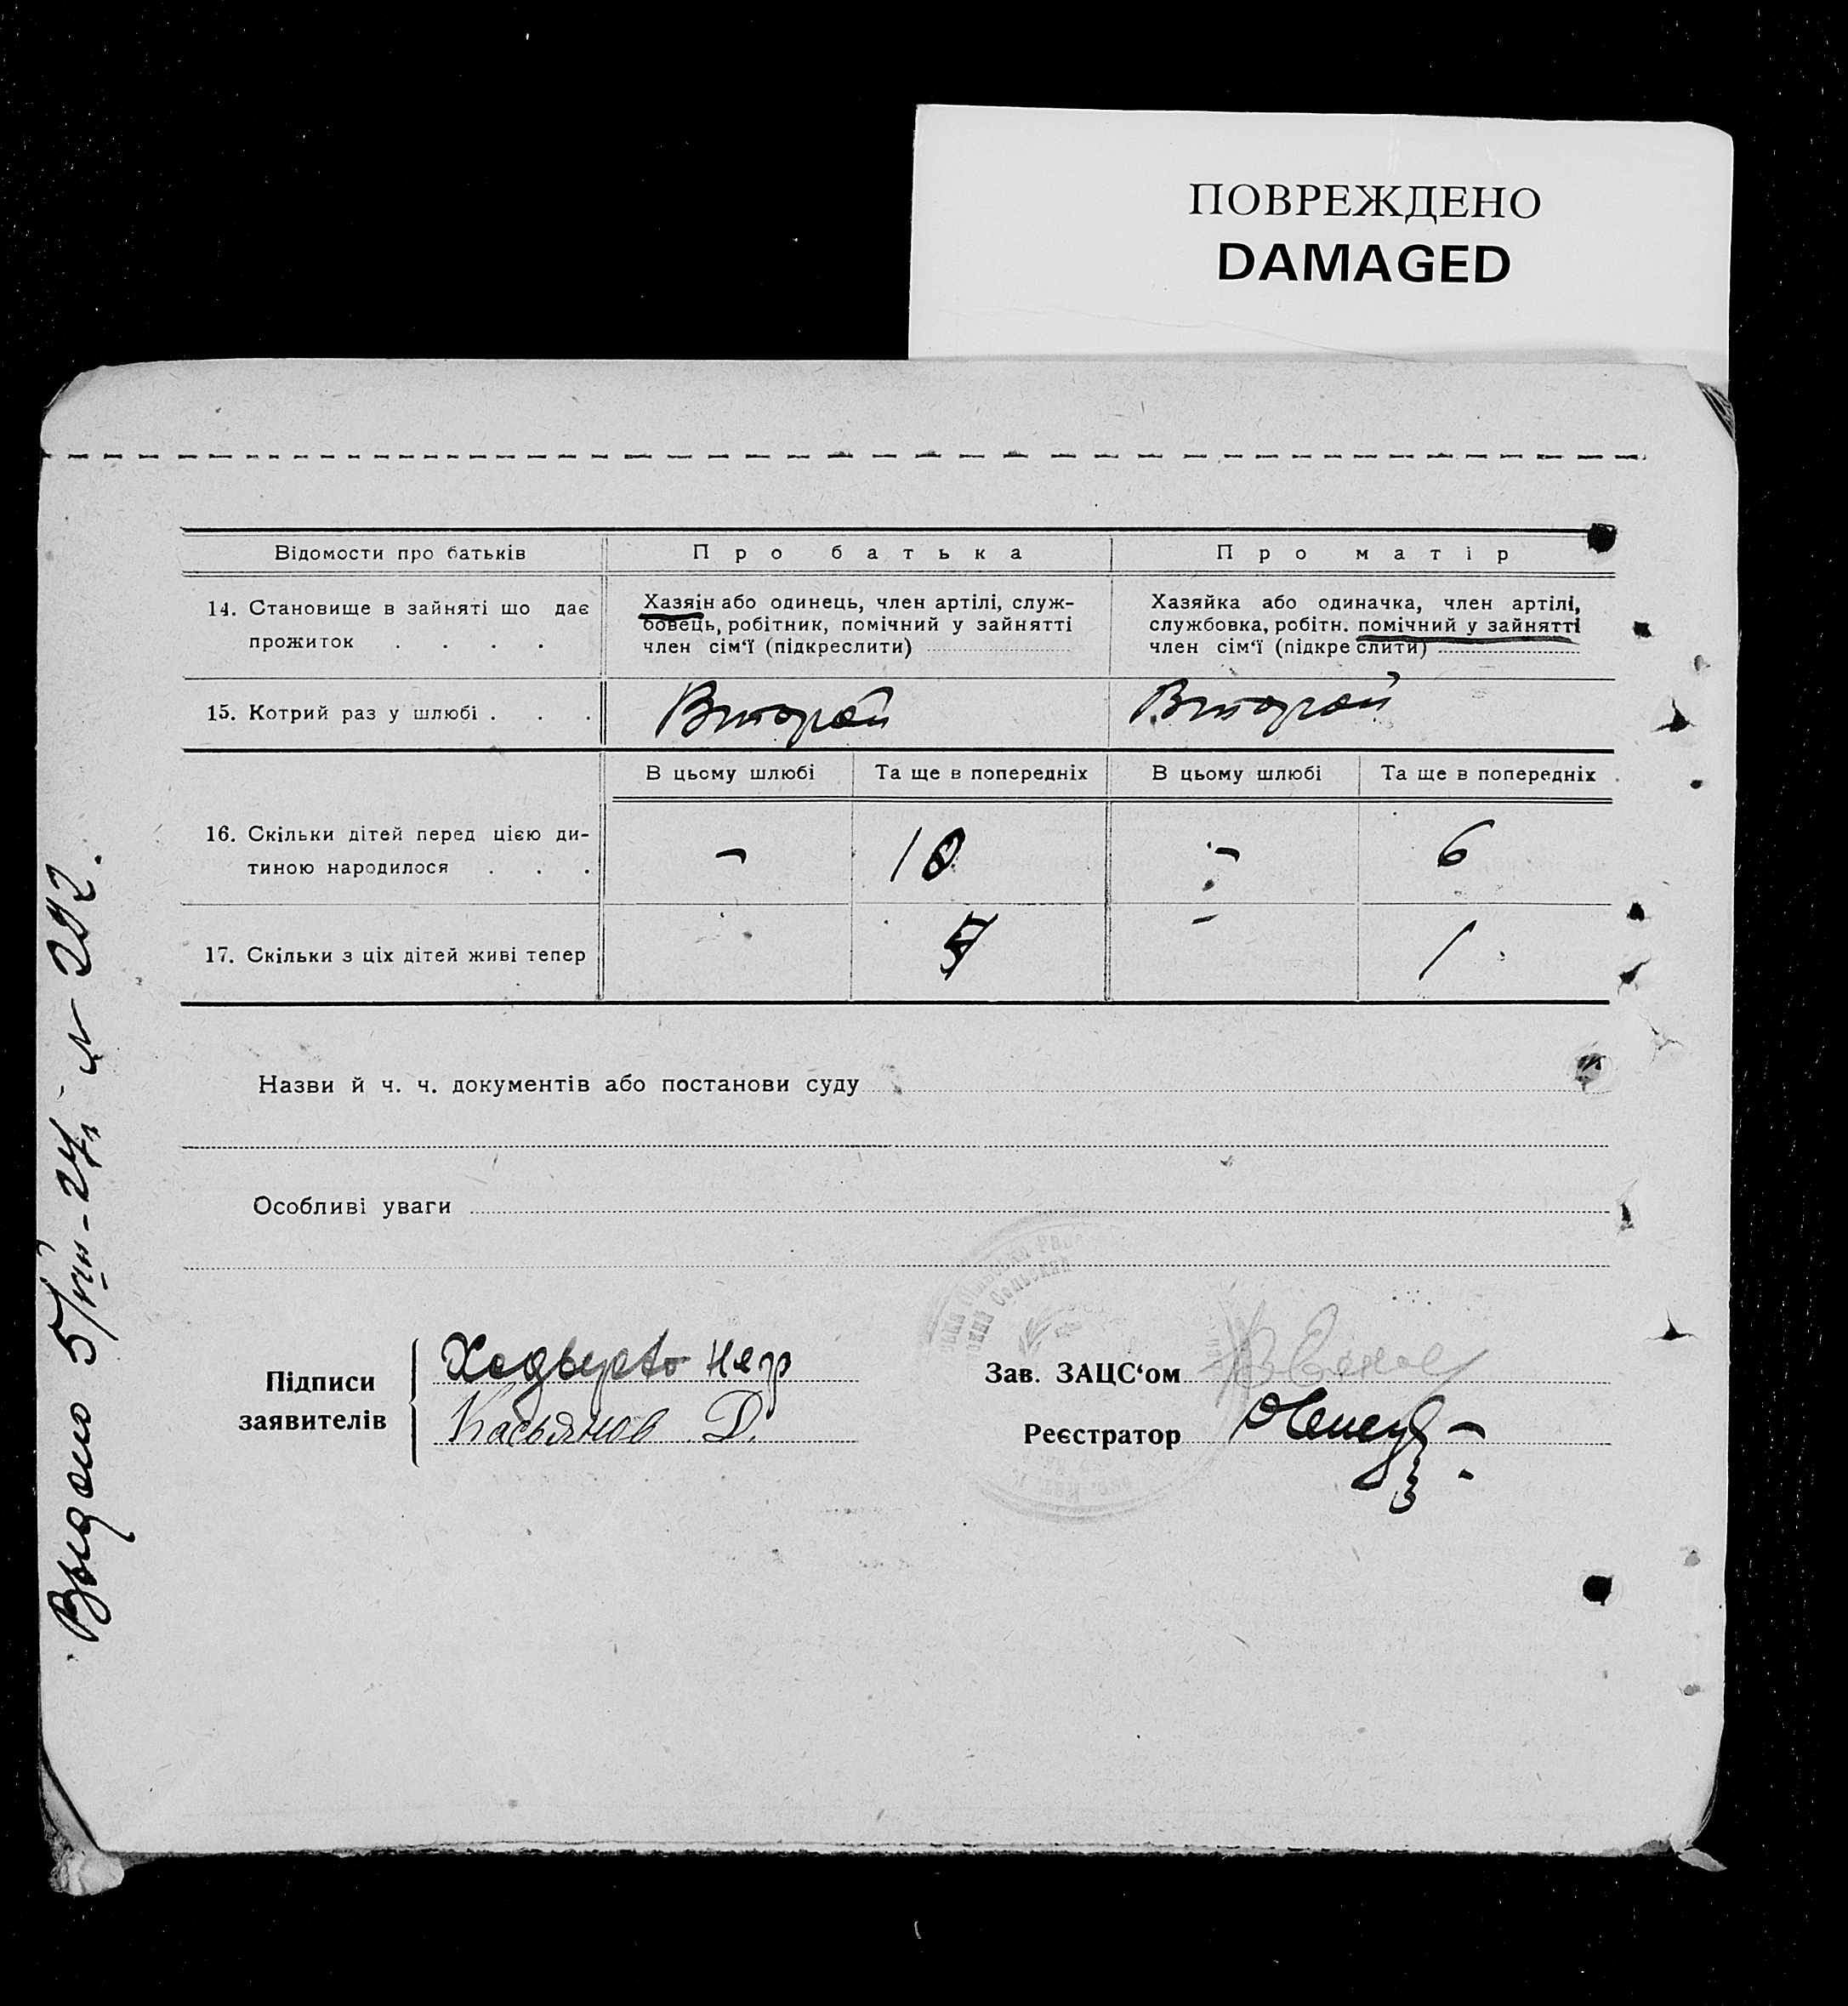 ПОВРЕЖДЕНО
DAMAGED
Відомости про батьків
Про батька
Про матір
14. Становище в зайняті що дає
прожиток . . . .
Хазяін або одинець, член артілі, служ-
бовець, робітник, помічний у зайнятті
член сім‘ї (підкреслити)
Хазяйка або одиначка, член артілі,
службовка, робітн. помічний у зайнятті
член сім‘ї (підкреслити)
15. Котрий раз у шлюбі . . .
Второй
Второй
В цьому шлюбі
Та ще в попередніх
В цьому шлюбі
Та ще в попередніх
16. Скільки дітей перед цією ди-
тиною народилося . . .
-
-
6
17. Скільки з ціх дітей живі тепер
-
1
Назви й ч. ч. документів або постанови суду
Особливі уваги
Підписи
заявителів
Касьянов Д.
Зав. ЗАЦС‘ом
Реєстратор
Выдано 5/VIII-24 № 292.